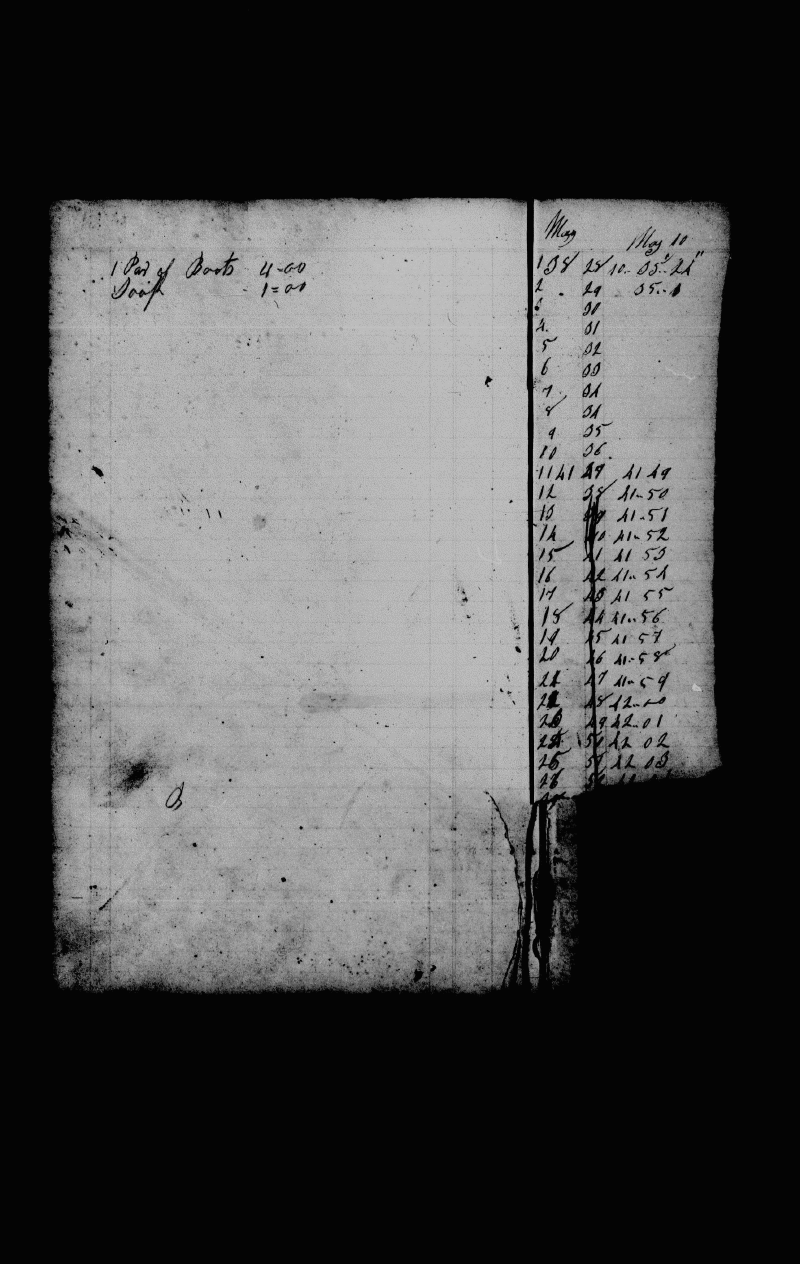 1 Par of Boots 4=00
Soap 1=00
May
May 10
1 38 28 10.. 35' 24"
2 29 35..
3 30
4 31
5 32
6 33
7 34
8 34
9 35
10 36
11 41 49 41 49
12 38 41-50
13 41-51
14 40 41-52
15 41 41 53
16 42 41-54
17 43 41 55
18 44 41-56
19 45 41 57
20 46 41-58
21 47 41-59
22 48 42-00
23 49 42-01
24 50 42 02
25 51 42 03